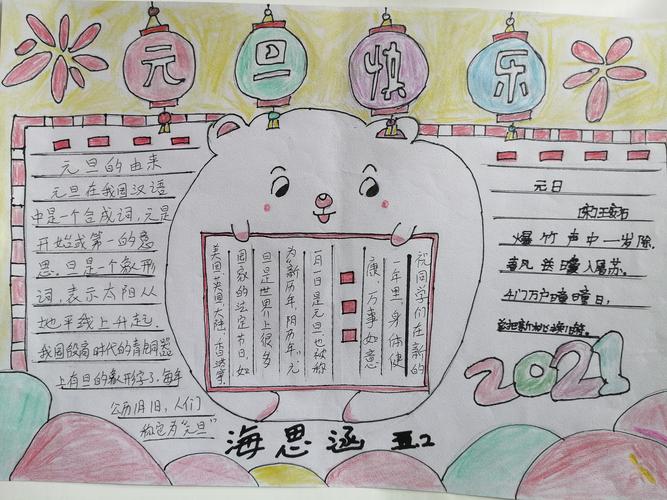 元旦快乐
元旦的由来
元旦在我国汉语
中是一个合成词,元是
开始或第一的意
思.旦是一个象形
词,表示太阳从
地平线上升起.
我国殷商时代的青铜器
上有旦的象形字了.每年
公历1月1日,人们
称它为“元旦”
祝同学们在新的
一年里,身体健
康,万事如意
一月一日是元旦,也被称
为“新历年,阴历年”.元
旦是世界上很多
国家的法定节日,如
美国,英国,大陆,香港等.
元日
(宋)王安石
爆竹声中一岁除.
春风送暖入屠苏.
千门万户瞳瞳日,
总把新桃换旧符.
2021
海思涵 五.2